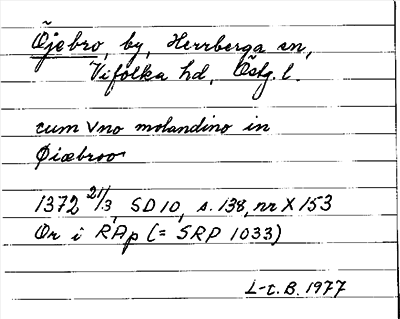 Öjebro, by, Herrberga sn,
Vifolka hd, Östg. l.
cum vno molandino in
Øiæbroo
1372 21/3, SD 10, s. 138, nr X 153
Or i RAp (= SRP 1033)
L-t. B. 1977